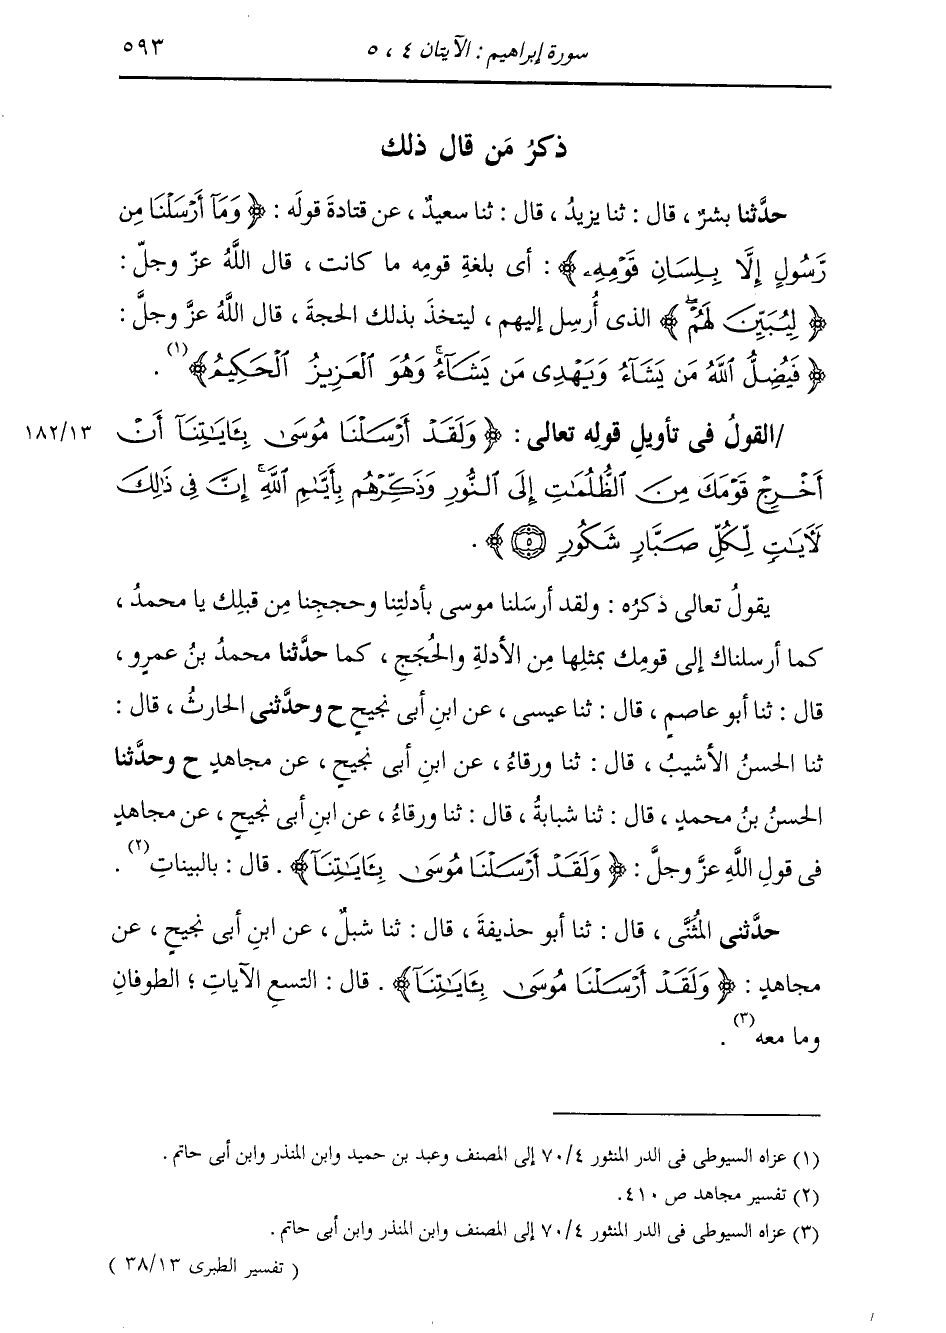 سورة إبراهيم : الآيتان ٤ ، ٥ ٥٩٣
ذكرُ مَن قال ذلك
حدَّثنا بشرٌ ، قال : ثنا يزيدُ ، قال : ثنا سعيدٌ ، عن قتادةَ قولَه : ﴿ وَمَآ أَرْسَلْنَا مِن
رَّسُولٍ إِلَّا بِلِسَانِ قَوْمِهِۦ ﴾ : أى بلغةِ قومِه ما كانت ، قال اللَّهُ عزّ وجلّ :
﴿ لِيُبَيِّنَ لَهُمْۖ ﴾ الذى أُرسِل إليهم ، ليتخذَ بذلك الحجةَ ، قال اللَّهُ عزَّ وجلَّ :
﴿ فَيُضِلُّ ٱللَّهُ مَن يَشَآءُ وَيَهْدِى مَن يَشَآءُۚ وَهُوَ ٱلْعَزِيزُ ٱلْحَكِيمُ ﴾(١) .
/القولُ فى تأويلِ قولِه تعالى : ﴿ وَلَقَدْ أَرْسَلْنَا مُوسَىٰ بِـَٔايَٰتِنَآ أَنْ ١٨٢/١٣
أَخْرِجْ قَوْمَكَ مِنَ ٱلظُّلُمَٰتِ إِلَى ٱلنُّورِ وَذَكِّرْهُم بِأَيَّىٰمِ ٱللَّهِۚ إِنَّ فِى ذَٰلِكَ
لَـَٔايَٰتٍ لِّكُلِّ صَبَّارٍ شَكُورٍ ٥ ﴾ .
يقولُ تعالى ذكرُه : ولقد أرسَلنا موسى بأدلتِنا وحججِنا مِن قبلِك يا محمدُ ،
كما أرسلناك إلى قومِك بمثلِها مِن الأدلةِ والحُجَجِ ، كما حدَّثنا محمدُ بنُ عمرٍو ،
قال : ثنا أبو عاصمٍ ، قال : ثنا عيسى ، عن ابنِ أبى نجيحٍ ح وحدَّثنى الحارثُ ، قال :
ثنا الحسنُ الأشيبُ ، قال : ثنا ورقاءُ ، عن ابنِ أبى نجيحٍ ، عن مجاهدٍ ح وحدَّثنا
الحسنُ بنُ محمدٍ ، قال : ثنا شبابةُ ، قال : ثنا ورقاءُ ، عن ابنِ أبى نجيحٍ ، عن مجاهدٍ
فى قولِ اللَّهِ عزَّ وجلَّ : ﴿ وَلَقَدْ أَرْسَلْنَا مُوسَىٰ بِـَٔايَٰتِنَآ ﴾ . قال : بالبيناتِ(٢) .
حدَّثنى المُثَنَّى ، قال : ثنا أبو حذيفةَ ، قال : ثنا شبلٌ ، عن ابنِ أبى نجيحٍ ، عن
مجاهدٍ : ﴿ وَلَقَدْ أَرْسَلْنَا مُوسَىٰ بِـَٔايَٰتِنَآ ﴾ . قال : التسعِ الآياتِ ؛ الطوفانِ
وما معه(٣) .
(١) عزاه السيوطى فى الدر المنثور ٧٠/٤ إلى المصنف وعبد بن حميد وابن المنذر وابن أبى حاتم .
(٢) تفسير مجاهد ص ٤١٠.
(٣) عزاه السيوطى فى الدر المنثور ٧٠/٤ إلى المصنف وابن المنذر وابن أبى حاتم .
( تفسير الطبرى ٣٨/١٣ )